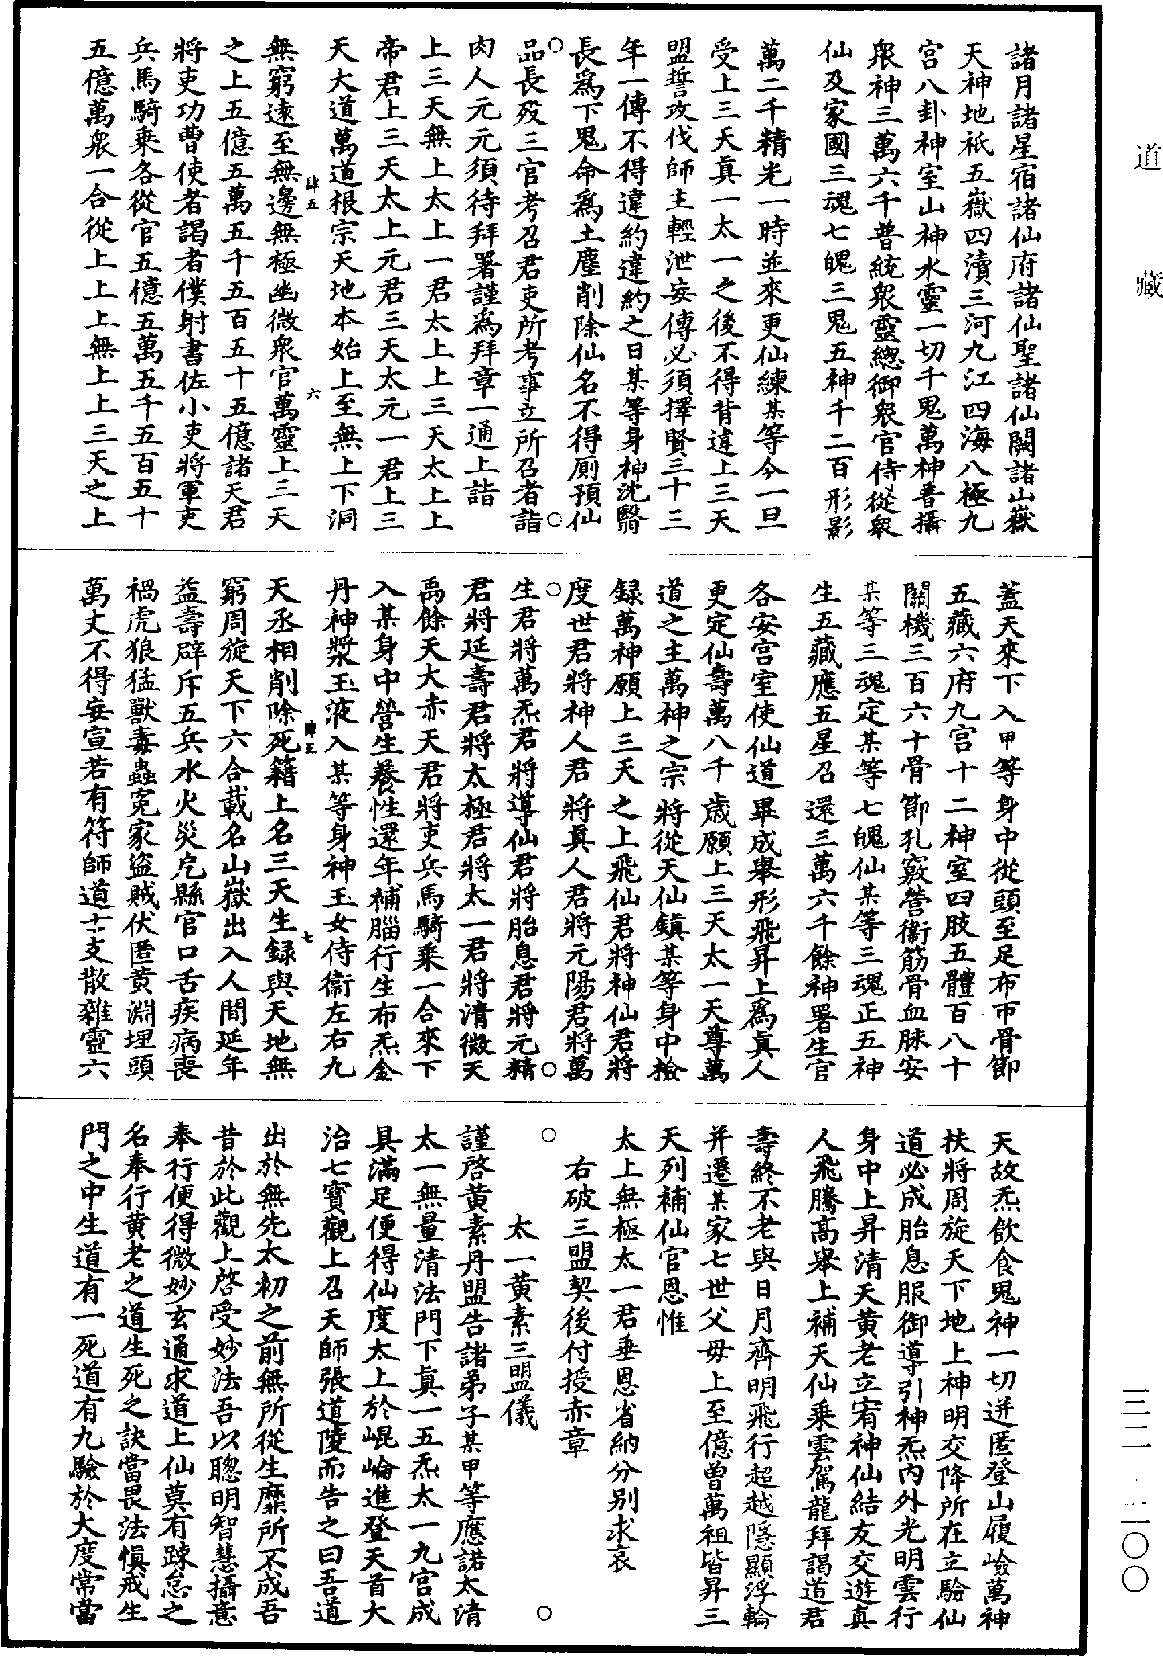 道藏
諸月諸星宿諸仙府諸仙聖諸仙闕諸山嶽
天神地祇五嶽四瀆三河九江四海八極九
宫八卦神室山神水靈一切千鬼萬神普攝
衆神三萬六千普統衆靈總御衆官侍從衆
仙及家國三魂七魄三鬼五神千二百形影
萬二千精光一時並來更仙練某等今一旦
受上三天眞一太一之後不得背違上三天
盟誓攻伐師主輕泄妄傳必須擇賢三十三
年一傳不得違約違約之日某等身神沈翳
長爲下鬼命爲土塵削除仙名不得厠預仙
品長歿三官考召君吏所考事立所召者詣
肉人元元須待拜署謹爲拜章一通上詣
上三天無上太上一君太上上三天太上上
帝君上三天太上元君三天太元一君上三
天大道萬道根宗天地本始上至無上下洞
無窮遠至無邊無極幽微衆官萬靈上三天
肆五 六
之上五億五萬五千五百五十五億諸天君
將吏功曹使者謁者僕射書佐小吏將軍吏
兵馬騎乘各從官五億五萬五千五百五十
五億萬衆一合從上上上無上上三天之上
蓋天來下入甲等身中從頭至足布帀骨節
五藏六府九宫十二神室四肢五體百八十
關機三百六十骨節孔竅營衞筋骨血脉安
某等三魂定某等七魄仙某等三魂正五神
生五藏應五星召還三萬六千餘神署生官
各安宫室使仙道畢成舉形飛昇上爲眞人
更定仙壽萬八千歲願上三天太一天尊萬
道之主萬神之宗將從天仙鎮某等身中撿
録萬神願上三天之上飛仙君將神仙君將
度世君將神人君將眞人君將元陽君將萬
生君將萬炁君將導仙君將胎息君將元精
君將延壽君將太極君將太一君將清微天
禹餘天大赤天君將吏兵馬騎乘一合來下
入某身中營生養性還年補腦行生布炁金
丹神漿玉液入某等身神玉女侍衞左右九
天丞相削除死籍上名三天生録與天地無
肆五 七
窮周旋天下六合載名山嶽出入人間延年
益壽辟斥五兵水火災厄縣官口舌疾病喪
禍虎狼猛獸毒蟲寃家盜賊伏匿黄淵埋頭
萬丈不得妄宣若有符師道士支散雜靈六
天故炁飲食鬼神一切迸匿登山履嶮萬神
扶將周旋天下地上神明交降所在立驗仙
道必成胎息服御導引神炁内外光明雲行
身中上昇清天黄老立宥神仙結友交遊真
人飛騰高舉上補天仙乘雲駕龍拜謁道君
壽終不老與日月齊明飛行超越隱顯浮輪
并遷某家七世父母上至億曾萬祖皆昇三
天列補仙官恩惟
太上無極太一君垂恩省納分别求哀
右破三盟契後付授赤章
太一黄素三盟儀
謹啓黄素丹盟告諸弟子某甲等應諾太清
太一無量清法門下眞一五炁太一九宫成
具滿足便得仙度太上於崐崘進登天首大
治七寶觀上召天師張道陵而告之曰吾道
出於無先太初之前無所從生靡所不成吾
昔於此觀上啓受妙法吾以聰明智慧攝意
奉行便得微妙玄通求道上仙莫有踈怠之
名奉行黄老之道生死之訣當畏法愼戒生
門之中生道有一死道有九驗於大度常當
三二·二〇〇